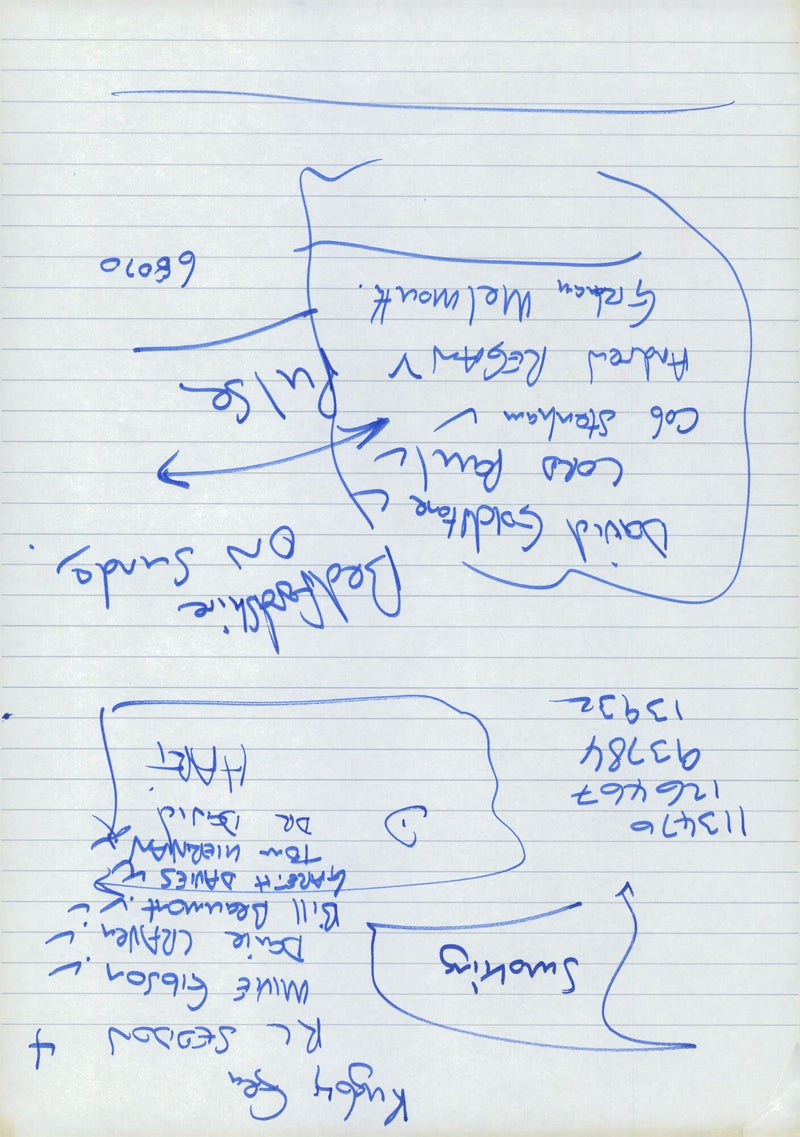 Rugby Gen
RL SEDDON
MIKE GIBSON
DANIE CRAVEN
Bill Beaumont
GARETH DAVIES
TOM KIERNAN
DR DAVID
HART
Smoking
113470
126467
93784
13932
Bedfordshire
ON Sunday.
David Goldstone
LORD Paul
Cob Stenham
Andrew REGAN
Graham Melmoth.
Pulse
68070